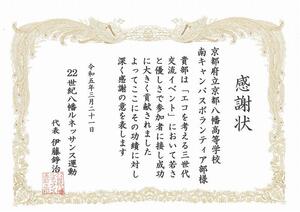 感謝状
京都府立京都八幡高等学校
南キャンパスボランティア部様
貴部は「エコを考える三世代
交流イベント」において若さ
と優しさで参加者に接し成功
に大きく貢献されました
よってここにその功績に対し
深く感謝の意を表します
令和五年三月二十一日
22世紀八幡ルネッサンス運動
代表 伊藤錚治